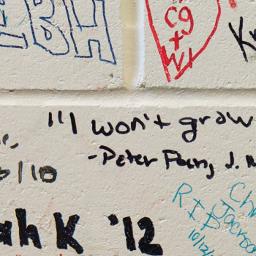 EBH
cg
+
W
"I won't grow
-Peter Pan, J. M
/10
ah K '12
RIP
Jackson
10/12/